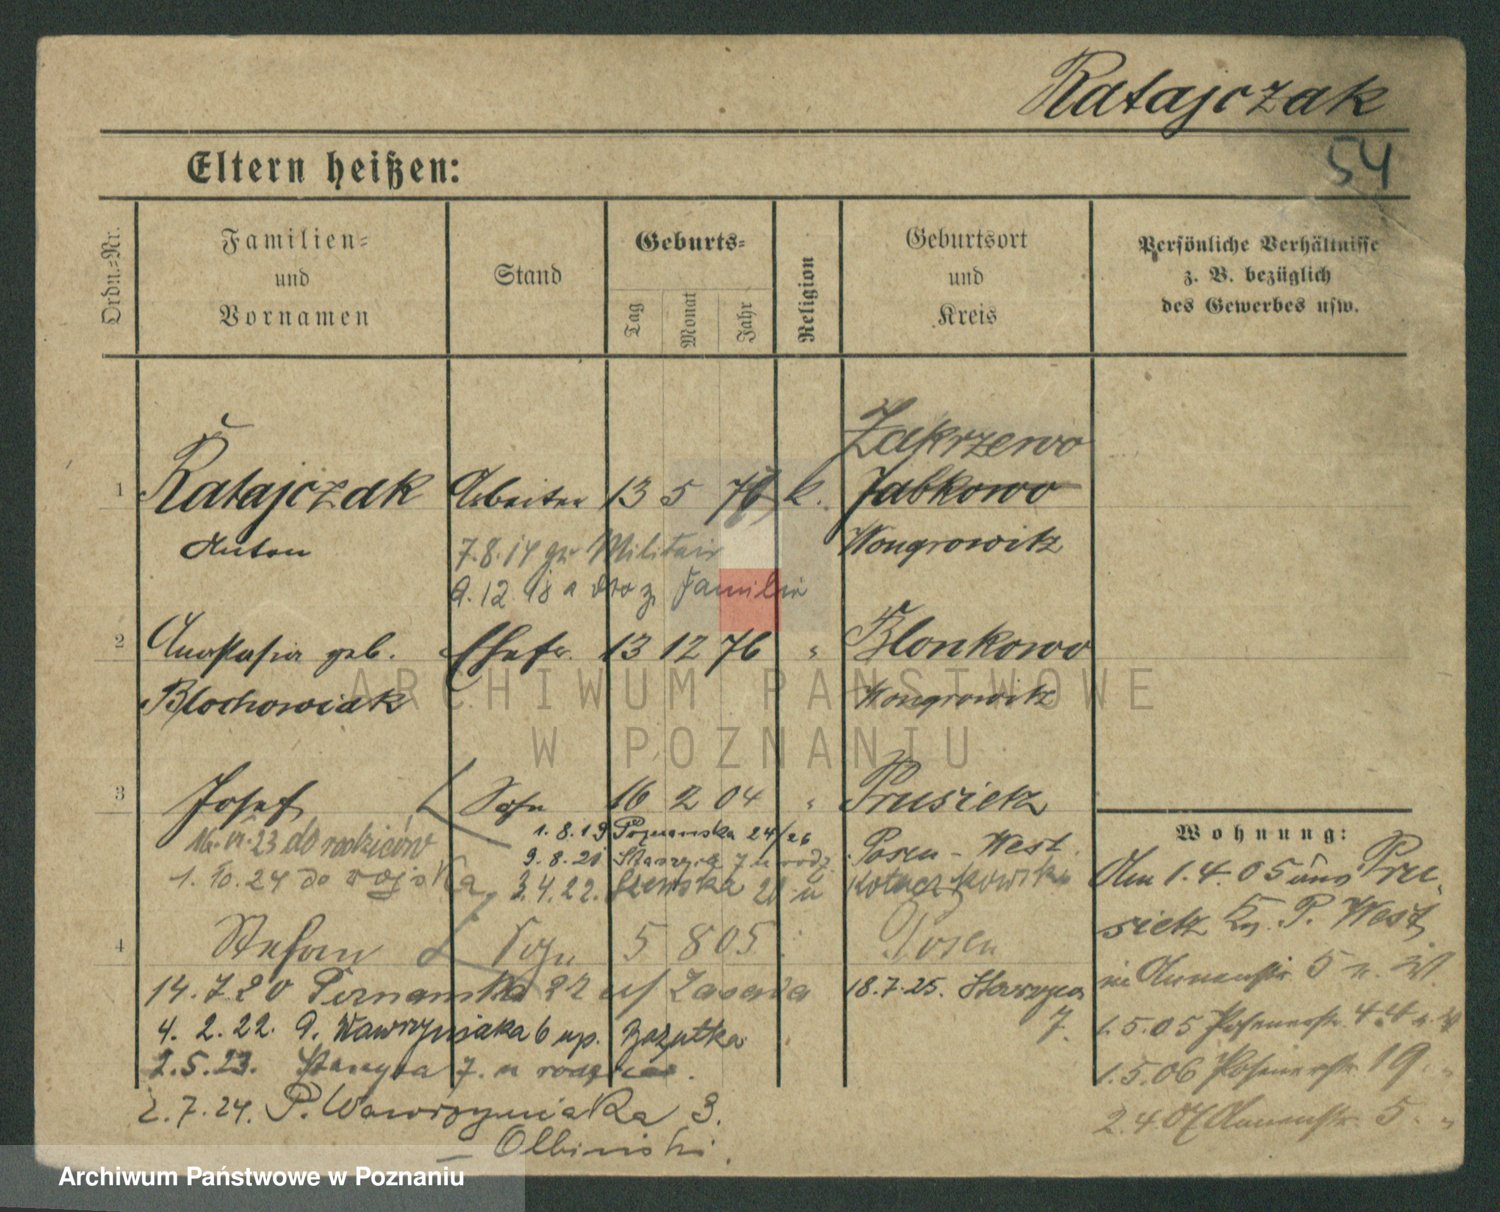 Ratajczak
54
Eltern heißen:
Ordn.-Nr.
Familien-
und
Vornamen
Stand
Geburts-
Tag
Monat
Jahr
Religion
Geburtsort
und
Kreis
Persönliche Verhältnisse
z. B. bezüglich
des Gewerbes usw.
Zakrzewo
1 Ratajczak Arbeiter 13 5 76 k. Jabkowo
Anton Wongrowitz
7.8.14 zu Militair
9.12.18 z. Familie
2 Anastasia geb. Ehefr. 13 12 76 " Blonkowo
Blochowiak Wongrowitz
3 Josef Sohn 16 2 04 " Prusietz
23 do rodziców
1.8.19 Poznanska 24/26 Posen-West
9.8.20 Staszyca 7 u rodz.
1.10.24 do wojska
3.4.22. 20 u
4 Stefan Sohn 5 8 05 Posen
14.7.20 22 u/ Zasada
18.7.25. Staszyca
7.
4. 2. 22. A. Wawrzyniaka 6 up.
2.5.23. Staszyca 7. u rodziców.
2.7.24. P. Wawrzyniaka 3.
– Olbinski.
Wohnung:
Am 1.4.05 aus Pru-
sietz Kr. P. West
in Annenstr. 5 n. W.
1.5.05 Posenerstr. 44 n. W
1.5.06 Posenerstr. 19. "
2.4.07 Annenstr. 5. "
ARCHIWUM PAŃSTWOWE
W POZNANIU
Archiwum Państwowe w Poznaniu